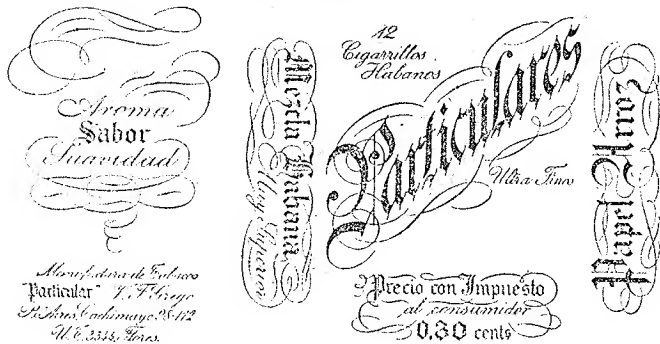 Aroma
Sabor
Suavidad
Manufactura de Tabacos
"Particular" V. F. Grego
Bs. Aires, Cachimayo
U. T. Flores.
Mezcla Habana
Muy Superior
12
Cigarrillos
Habanos
Particulares
Ultra Finos
Precio con Impuesto
al consumidor
0.30 cents
Papel Arroz